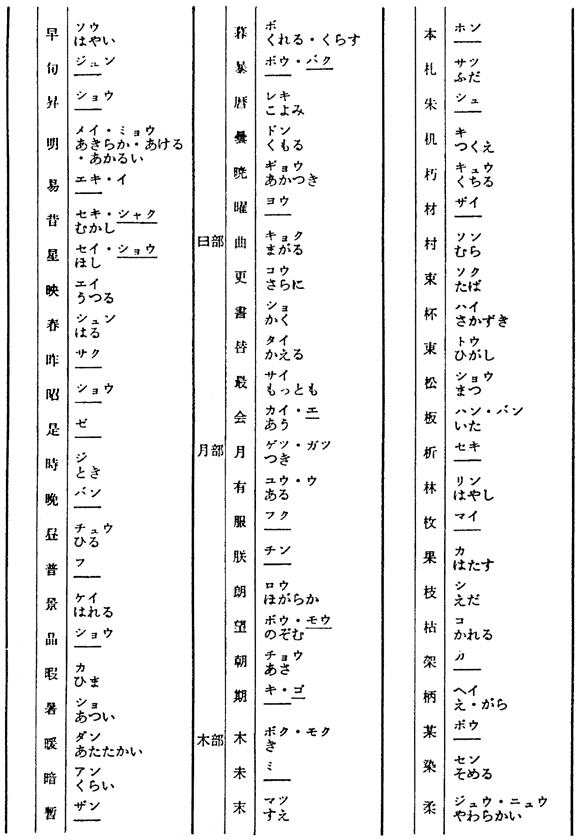 早 ソウ
はやい
旬 ジュン
昇 ショウ
明 メイ・ミョウ
あきらか・あける
・あかるい
易 エキ・イ
昔 セキ・シャク
むかし
星 セイ・ショウ
ほし
映 エイ
うつる
春 シュン
はる
昨 サク
昭 ショウ
是 ゼ
時 ジ
とき
晩 バン
昼 チュウ
ひる
普 フ
景 ケイ
はれる
晶 ショウ
暇 カ
ひま
暑 ショ
あつい
暖 ダン
あたたかい
暗 アン
くらい
暫 ザン
暮 ボ
くれる・くらす
暴 ボウ・バク
暦 レキ
こよみ
曇 ドン
くもる
暁 ギョウ
あかつき
曜 ヨウ
日部 曲 キョク
まがる
更 コウ
さらに
書 ショ
かく
替 タイ
かえる
最 サイ
もっとも
会 カイ・エ
あう
月部 月 ゲツ・ガツ
つき
有 ユウ・ウ
ある
服 フク
朕 チン
朗 ロウ
ほがらか
望 ボウ・モウ
のぞむ
朝 チョウ
あさ
期 キ・ゴ
木部 木 ボク・モク
き
未 ミ
末 マツ
すえ
本 ホン
札 サツ
ふだ
朱 シュ
机 キ
つくえ
朽 キュウ
くちる
材 ザイ
村 ソン
むら
束 ソク
たば
杯 ハイ
さかずき
東 トウ
ひがし
松 ショウ
まつ
板 ハン・バン
いた
析 セキ
林 リン
はやし
枚 マイ
果 カ
はたす
枝 シ
えだ
枯 コ
かれる
架 カ
柄 ヘイ
え・がら
某 ボウ
染 セン
そめる
柔 ジュウ・ニュウ
やわらかい